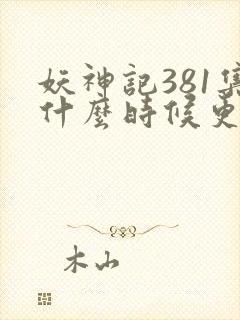 妖神記381集
什麼時候更
木山